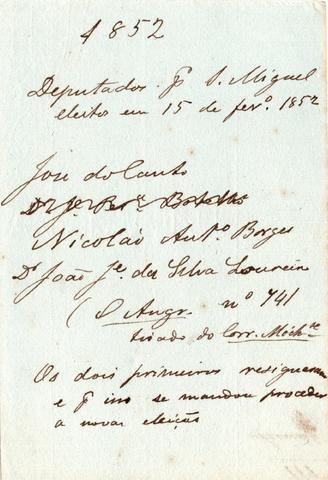 1852
Deputados p. S. Miguel
eleitos em 15 de fevº. 1852
José do Canto
Dr. Jº. Perª Botelho
Nicoláo Antº. Borges
Dr. João Jº. da Silva Loureiro
(O Angr. nº 741
tirado do Corr. Mich.se
Os dois primeiros resignaram
e p isso se mandou proceder
a novas eleição